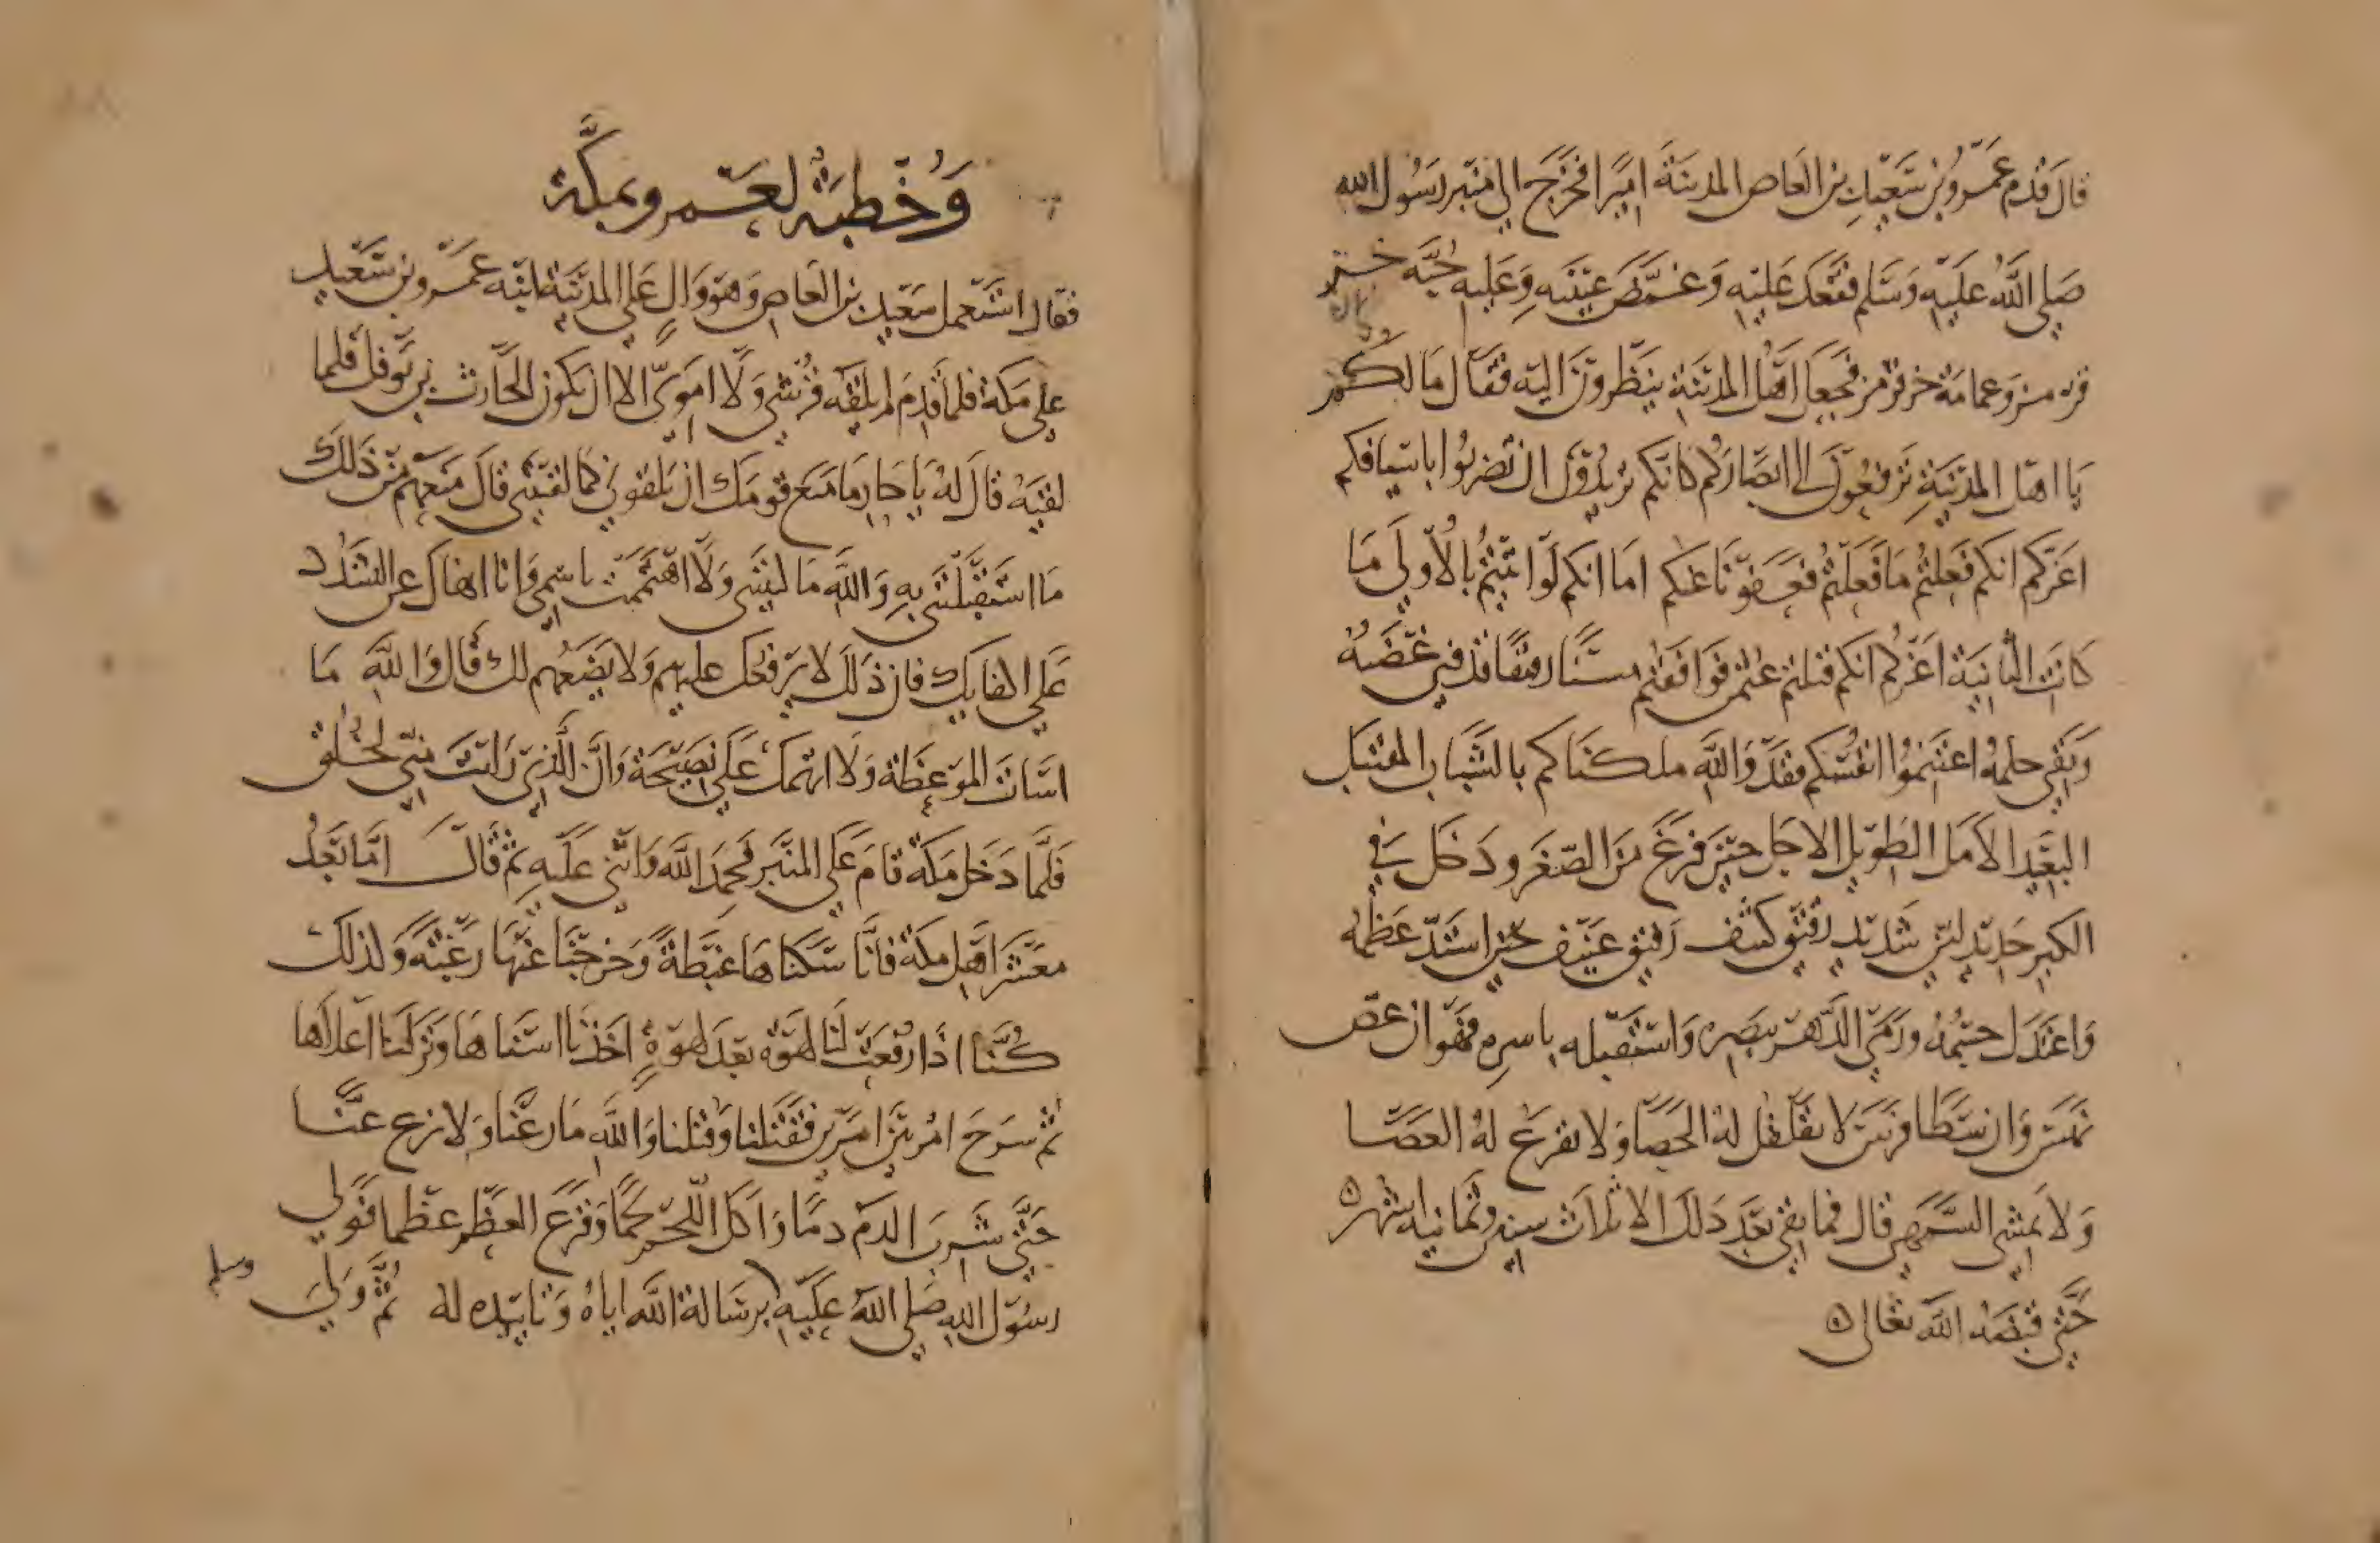 قال قدم عمرو بن سعيد بن العاص المدينة اميرا فخرج الي منبر رسول الله
صلي الله عليه وسلم فقعد عليه وغمض عينيه وعليه جبة خز
قرمز وعمامة خز قرمز فجعل اهل المدينة ينظرون اليه فقال ما لكم
يا اهل المدينة ترفعون الي ابصاركم كانكم تريدون ان تضربوا باسيافكم
اغركم انكم فعلتم ما فعلتم فعفونا عنكم اما انكم لو اثبتم بالاولي ما
كانت الثانية اغركم انكم قتلتم عثمن فوافقتم منا رفيقا قد فني غضبه
وبقي حلمه اغتنموا انفسكم فقد والله ملكناكم بالشباب المقتبل
البعيد الامل الطويل الاجل حين فرغ من الصغر ودخل في
الكبر حديد لين شديد رقيق كثيف رفيق عنيف حين اشتد عظمه
واعتدل جسمه ورمي الدهر ببصره واستقبله باسره فهو ان عض
نهس وان سطا فرس لا يقلقل له الحصا ولا يقرع له العصا
ولا يمشي السمهي قال فما بقي بعد ذلك الا ثلاث سنين وثمانية اشهر
حتي قبضه الله تعالي
وخطبة لعمرو بمكة
فقال استعمل سعيد بن العاص وهو وال علي المدينة ابنه عمرو بن سعيد
علي مكة فلما قدم لم يلقه قرشي ولا اموي الا ان يكون الحارث بن نوفل فلما
لقيه قال له يا حار ما منع قومك ان يلقوني كما لقيتني قال منعهم من ذلك
ما استقبلتني به والله ما كنيتني ولا اتممت اسمي وانا انهاك عن التشذر
علي اكفايك فان ذلك لا يرفعك عليهم ولا يضعهم لك قال والله ما
اسات الموعظة ولا اتهمك علي نصيحة وان الذي رايت مني لخلق
فلما دخل مكة قام علي المنبر فحمد الله واثني عليه ثم قال اما بعد
معشر اهل مكة فانا سكناها غبطة وخرجنا عنها رغبة ولذلك
كنا اذا رفعت لنا لهوة بعد لهوة اخذنا اسناها وتركنا اعلاها
ثم شرح امر بين امرين فقتلنا وقتلنا والله ما نزعنا ولا نزع عنا
حتي شرب الدم دما واكل اللحم لحما وقرع العظم عظما فولي
رسول الله صلي الله عليه وسلم برسالة الله اياه وتاييده له ثم ولي